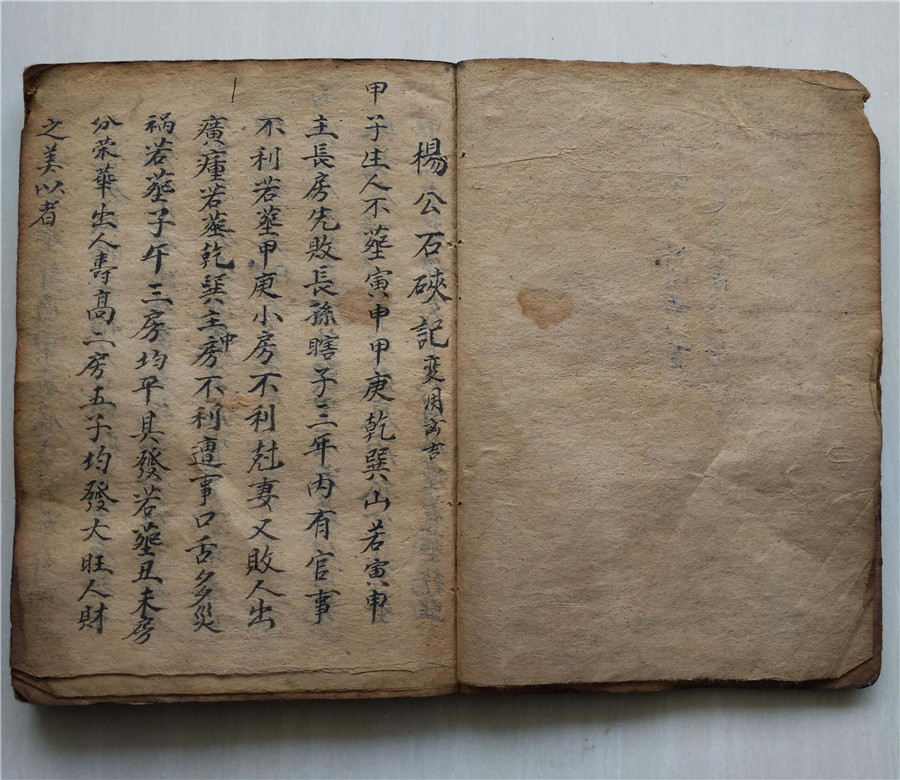 楊公石硤記 变用玄吉
甲子生人不𦵏寅申甲庚乾巽山若寅申
主長房先敗長孫瞎子三年内有官事
不利若𦵏甲庚小房不利尅妻又敗人出
㾮瘇若𦵏乾巽主中房不利遭事口舌多災
祸若𦵏子午三房均平具發若𦵏丑未房
分荣華出人壽高二房五子均發大旺人財
之美以者